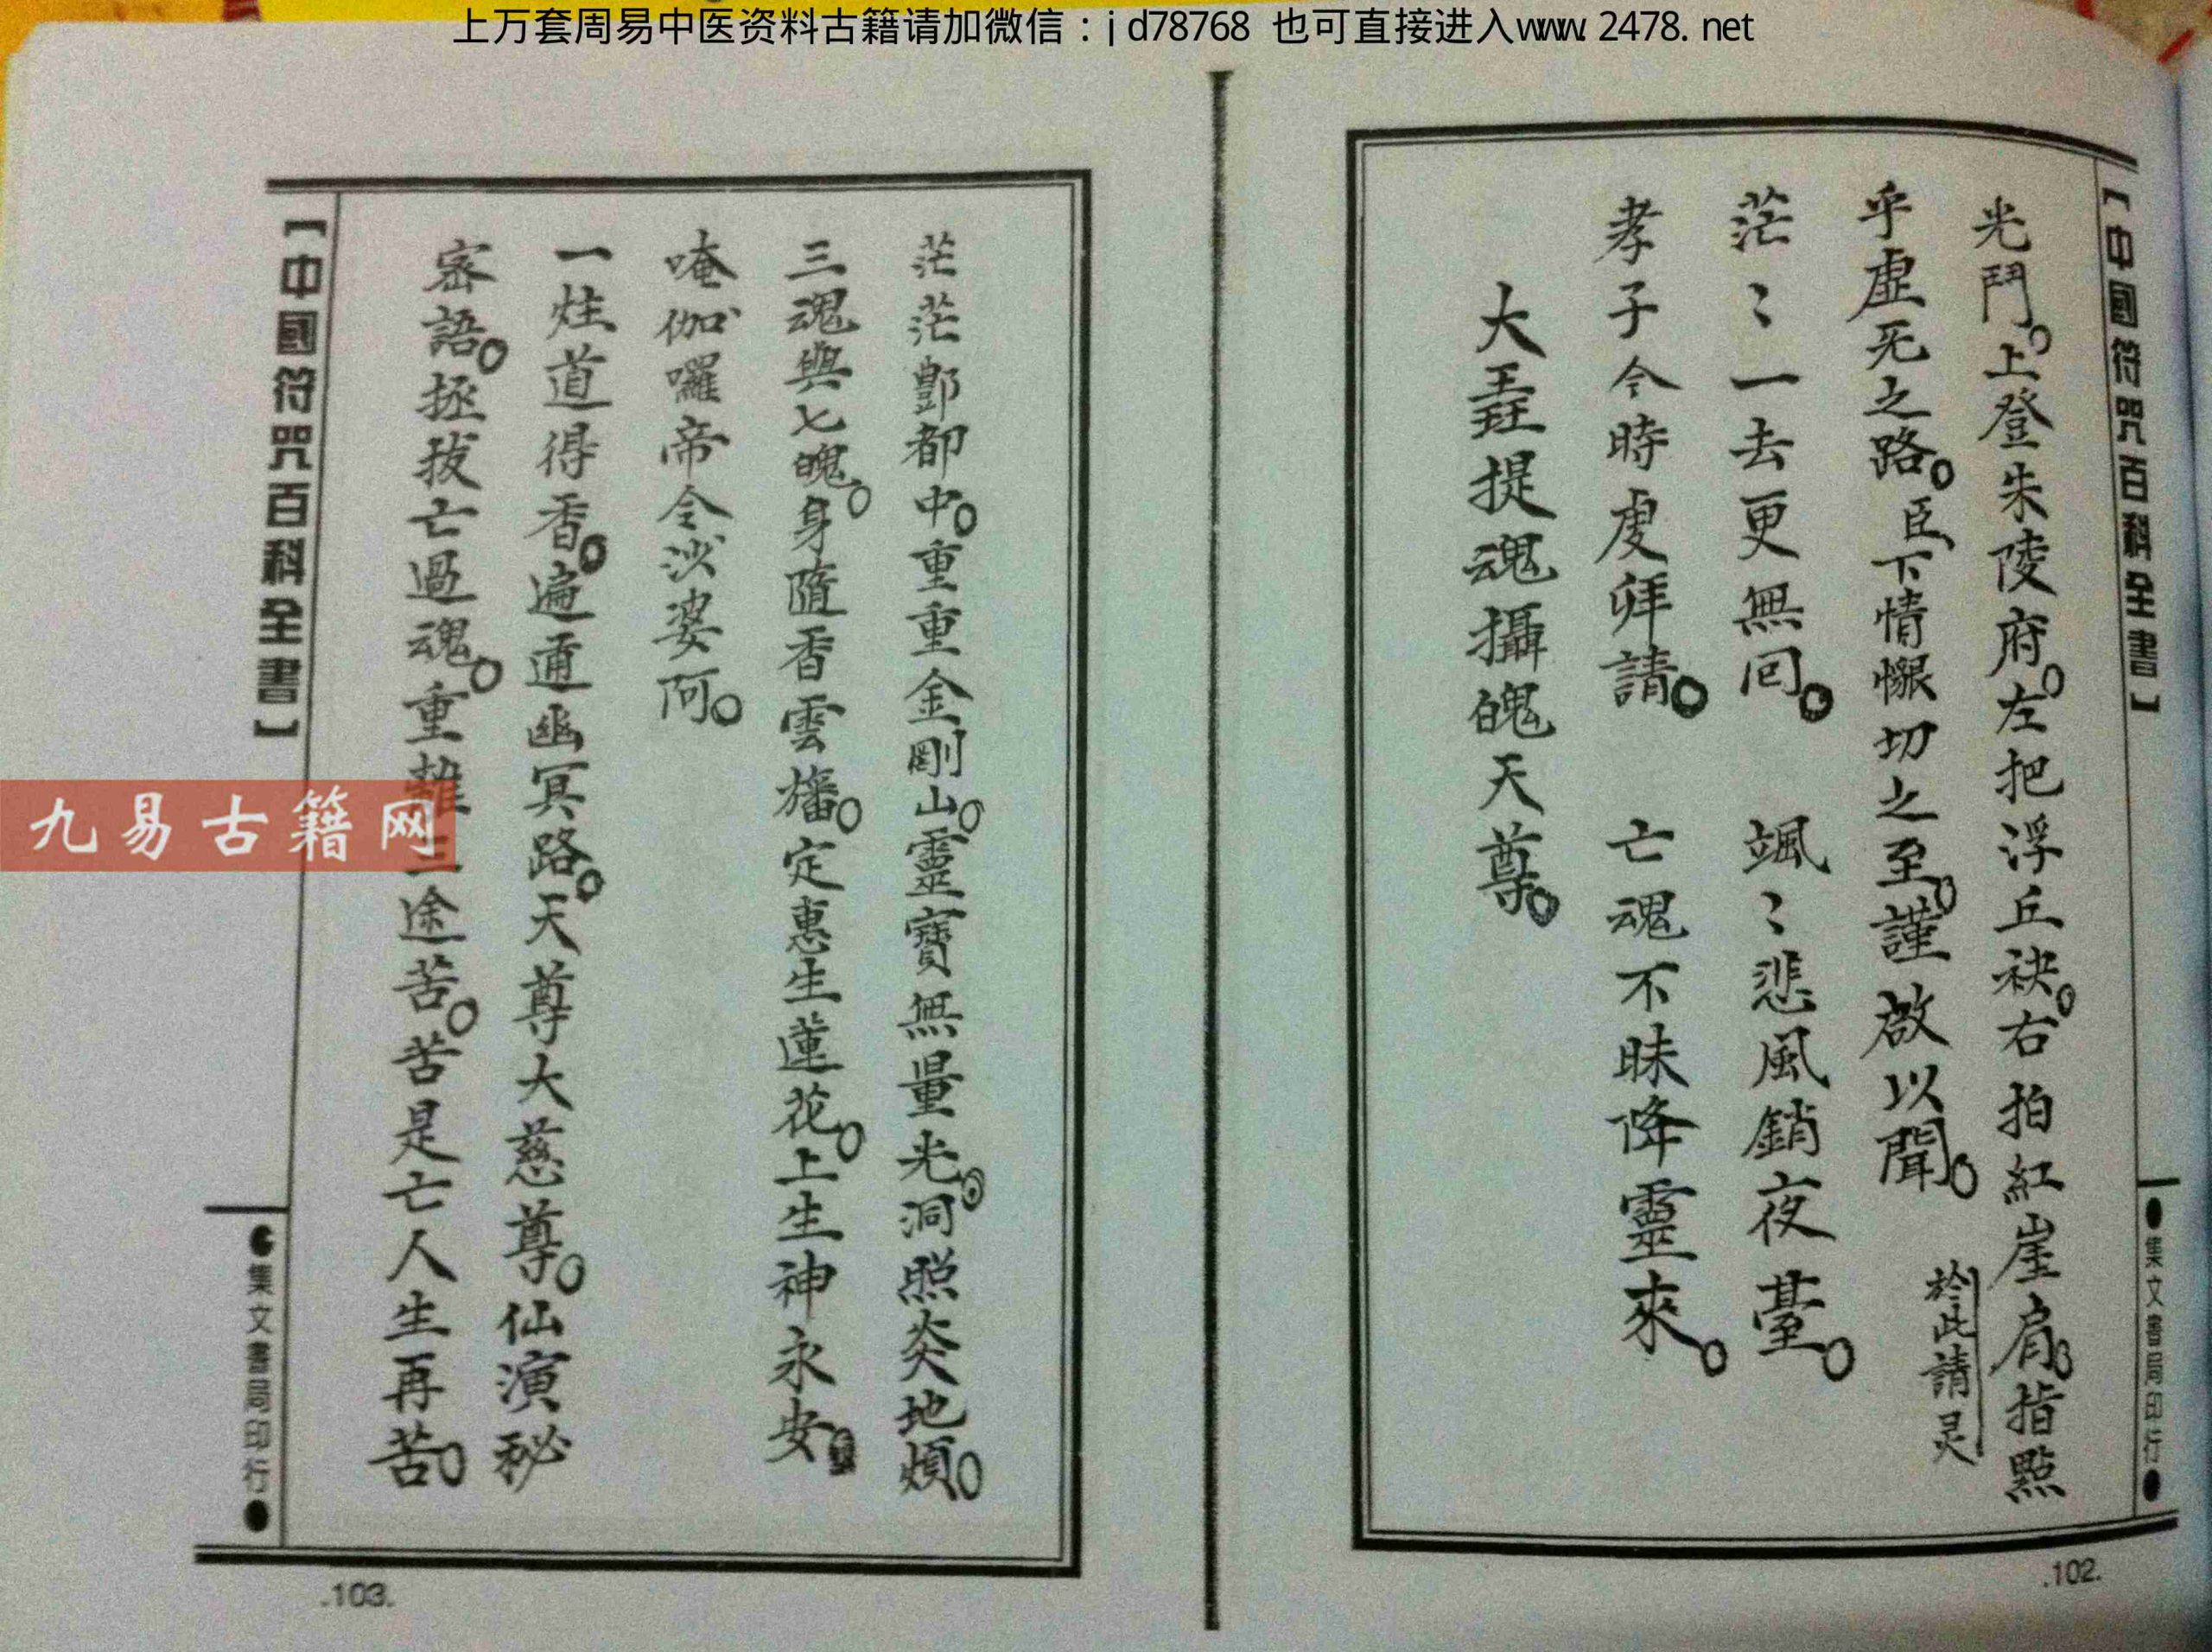 上万套周易中医资料古籍请加微信：jd78768 也可直接进入www.2478.net
【中國符咒百科全書】
●集文書局印行●
光鬥。上登朱陵府。左把浮丘袂。右拍紅崖肩。指點
乎虛无之路。臣下情懇切之至。謹啟以聞。 於此請灵
茫〻一去更無囘。 颯〻悲風銷夜臺。
孝子今時虔拜請。 亡魂不昧降靈來。
大聖提魂攝魄天尊。
.102.
茫茫酆都中。重重金剛山。靈寶無量光。洞照炎地煩。
三魂與七魄。身隨香雲旛。定惠生蓮花。上生神永安。
唵伽囉帝令沙婆阿。
一炷道得香。遍通幽冥路。天尊大慈尊。仙演秘
密語。拯拔亡過魂。重離三途苦。苦是亡人生再苦。
【中國符咒百科全書】
●集文書局印行●
.103.
九易古籍网